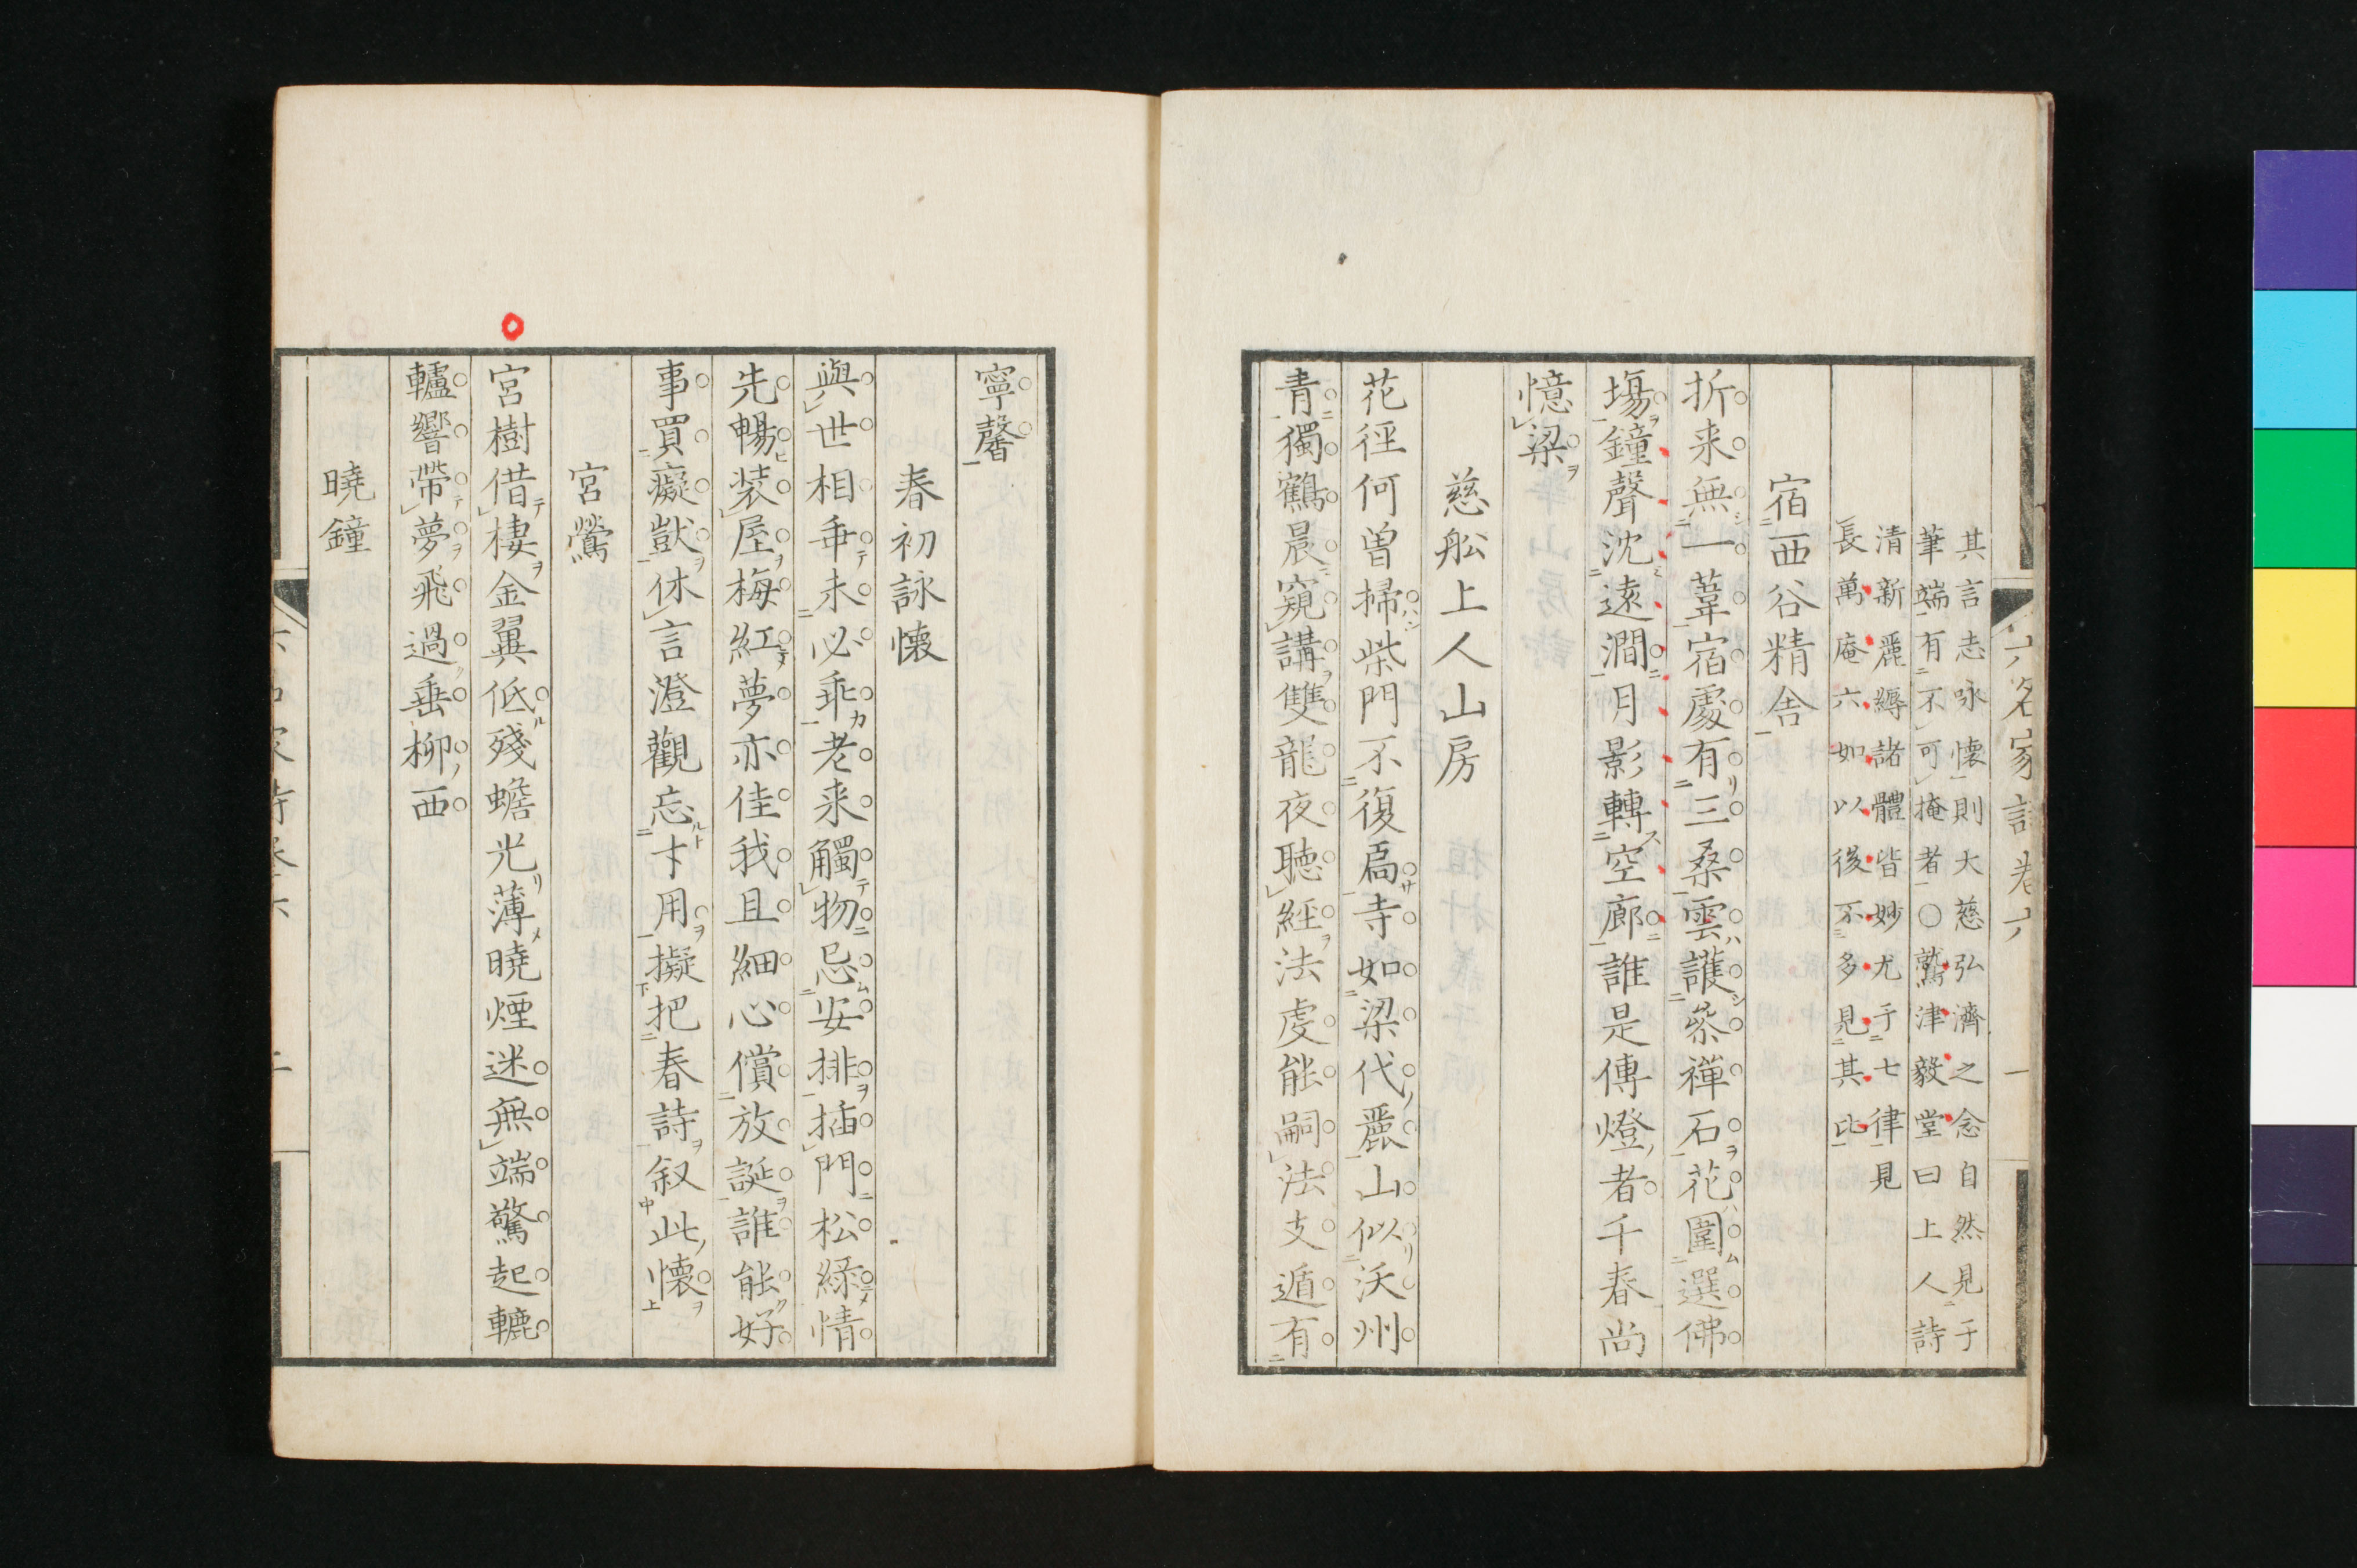 六名家詩卷六
一
其言志咏懷則大慈弘濟之念自然見于
筆端有不可掩者〇鷲津毅堂曰上人詩
清新麗縟諸體皆妙尤于七律見
長萬庵六如以後不多見其比
宿西谷精舍
折来無一葦宿處有三桑雲護叅禪石花圍選佛
塲鐘聲沈遠澗月影轉空廊誰是傳燈者千春尚
憶梁
慈舩上人山房
花徑何曽掃柴門不復扃寺如梁代麗山似沃州
青獨鶴晨窺講雙龍夜聴經法虔能嗣法支遁有
寧馨
春初詠懷
與世相乖未必乖老来觸物忌安排插門松綠情
先暢装屋梅紅夢亦佳我且細心償放誕誰能好
事買癡獃休言澄觀忘才用擬把春詩叙此懷
宮鶯
宮樹借棲金翼低殘蟾光薄曉煙迷無端驚起轆
轤響帶夢飛過垂柳西
曉鐘